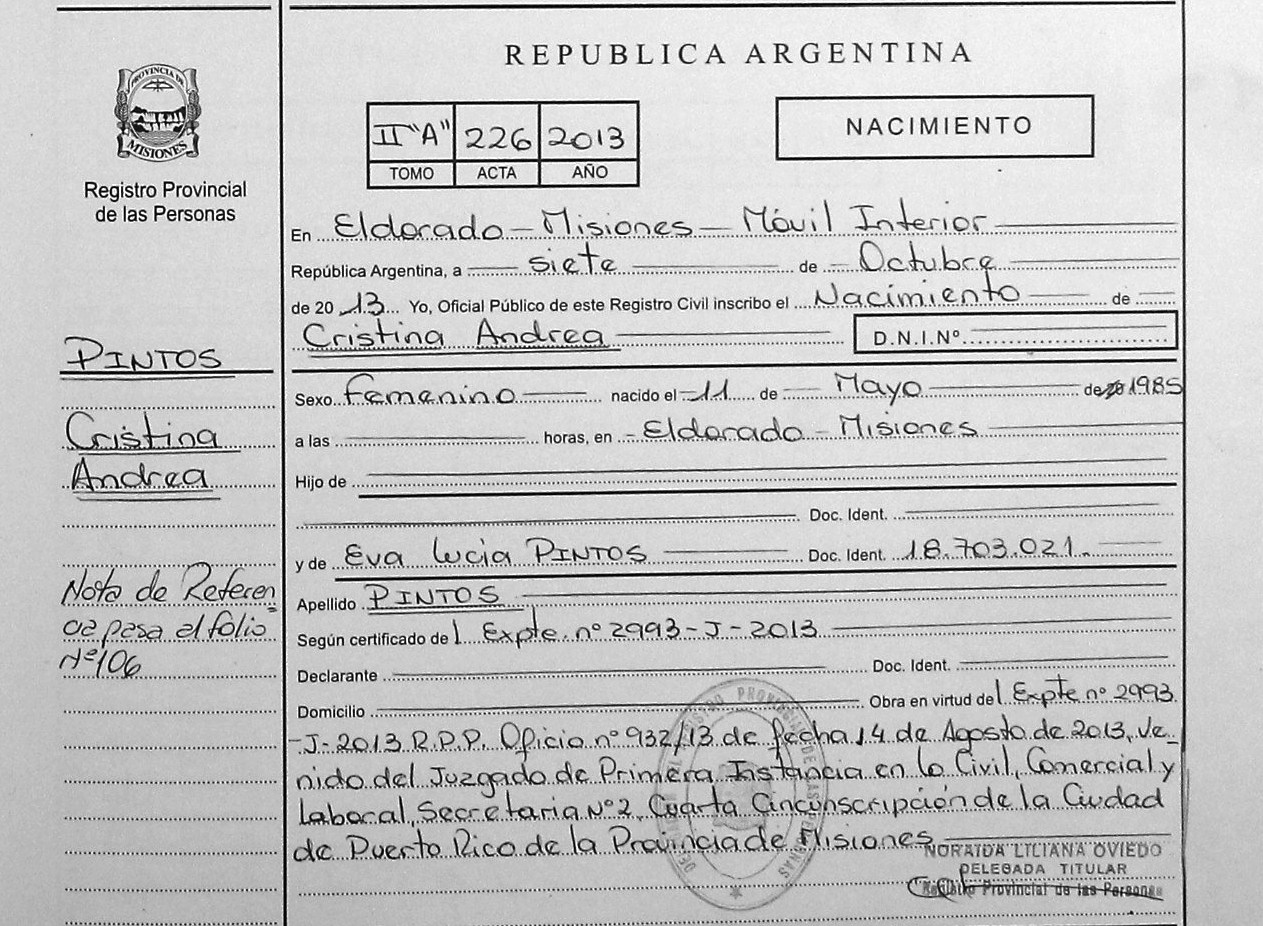 REPUBLICA ARGENTINA
PROVINCIA DE
MISIONES
Registro Provincial
de las Personas
II "A" 226 2013
TOMO ACTA AÑO
NACIMIENTO
En Eldorado - Misiones - Móvil Interior
República Argentina, a siete de Octubre
de 20 13 Yo, Oficial Público de este Registro Civil inscribo el Nacimiento de
Cristina Andrea D.N.I.Nº
PINTOS
Cristina
Andrea
Sexo Femenino nacido el 11 de Mayo de 1985
a las horas, en Eldorado - Misiones
Hijo de
Doc. Ident.
y de Eva Lucia PINTOS Doc. Ident. 18.703.021.
Nota de Referen
cia pasa al folio
Nº106
Apellido PINTOS
Según certificado de l Expte. nº 2993-J-2013
Declarante Doc. Ident.
Domicilio Obra en virtud del Expte nº 2993
-J-2013 R.P.P. Oficio nº 932/13 de fecha 14 de Agosto de 2013, ve-
nido del Juzgado de Primera Instancia en lo Civil, Comercial y
laboral, Secretaria Nº2, Cuarta Circunscripción de la Ciudad
de Puerto Rico de la Provincia de Misiones
NORAIDA LILIANA OVIEDO
DELEGADA TITULAR
Registro Provincial de las Personas